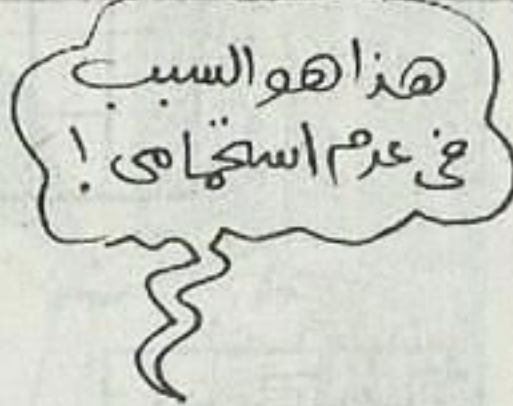 هذا هو السبب
فى عدم استحمامى !